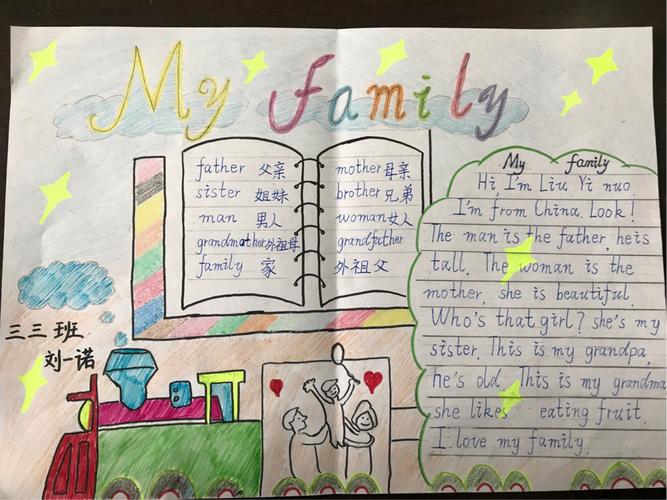 My family
father 父亲
sister 姐妹
man 男人
grandmother外祖母
family 家
mother母亲
brother兄弟
woman女人
grandfather
外祖父
三三班
刘一诺
My family
Hi, I'm Liu Yi nuo.
I'm from China. Look!
The man is the father, he is
tall. The woman is the
mother, she is beautiful.
Who's that girl? she's my
sister. This is my grandpa,
he's old. This is my grandma
she likes eating fruit.
I love my family.